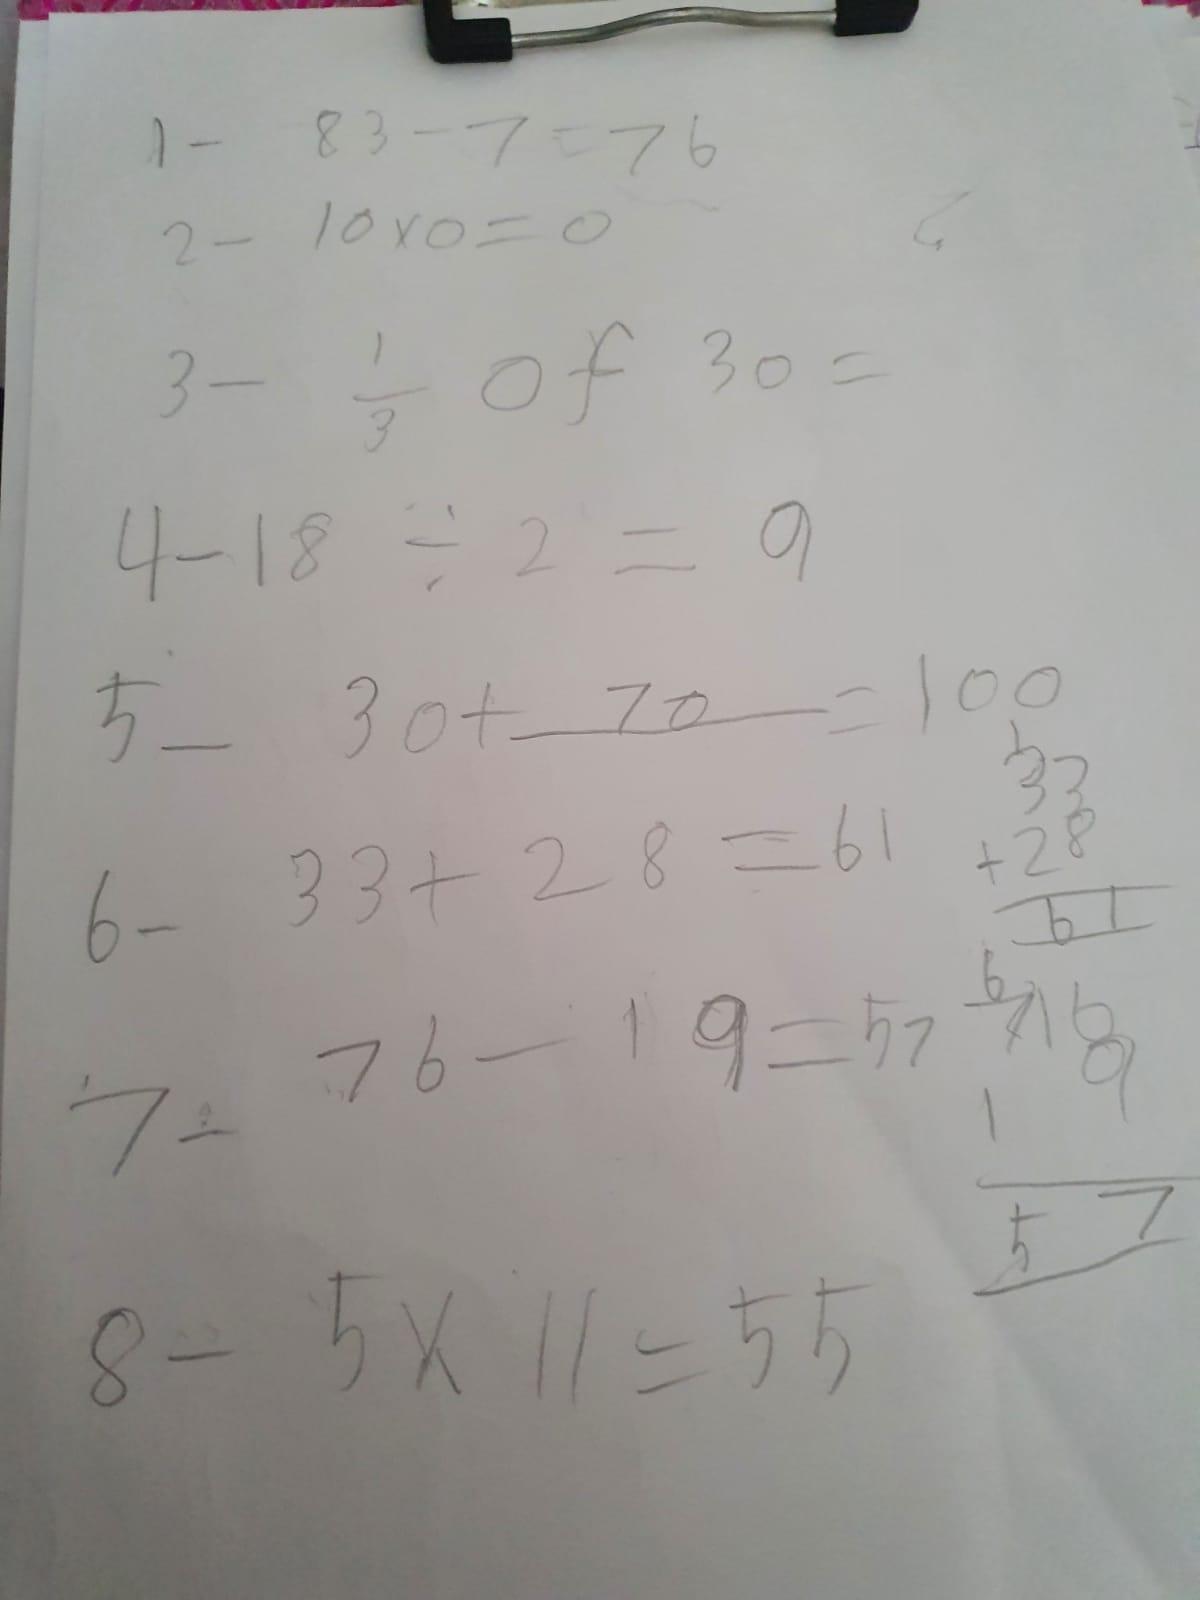 1- 83-7=76
2- 10x0=0
3- 1/3 of 30=
4-18 ÷ 2 = 9
5- 30+ 70 =100
6- 33+ 28 =61
33
+28
61
7- 76-19=57
6
7 16
1 9
57
8- 5x 11=55